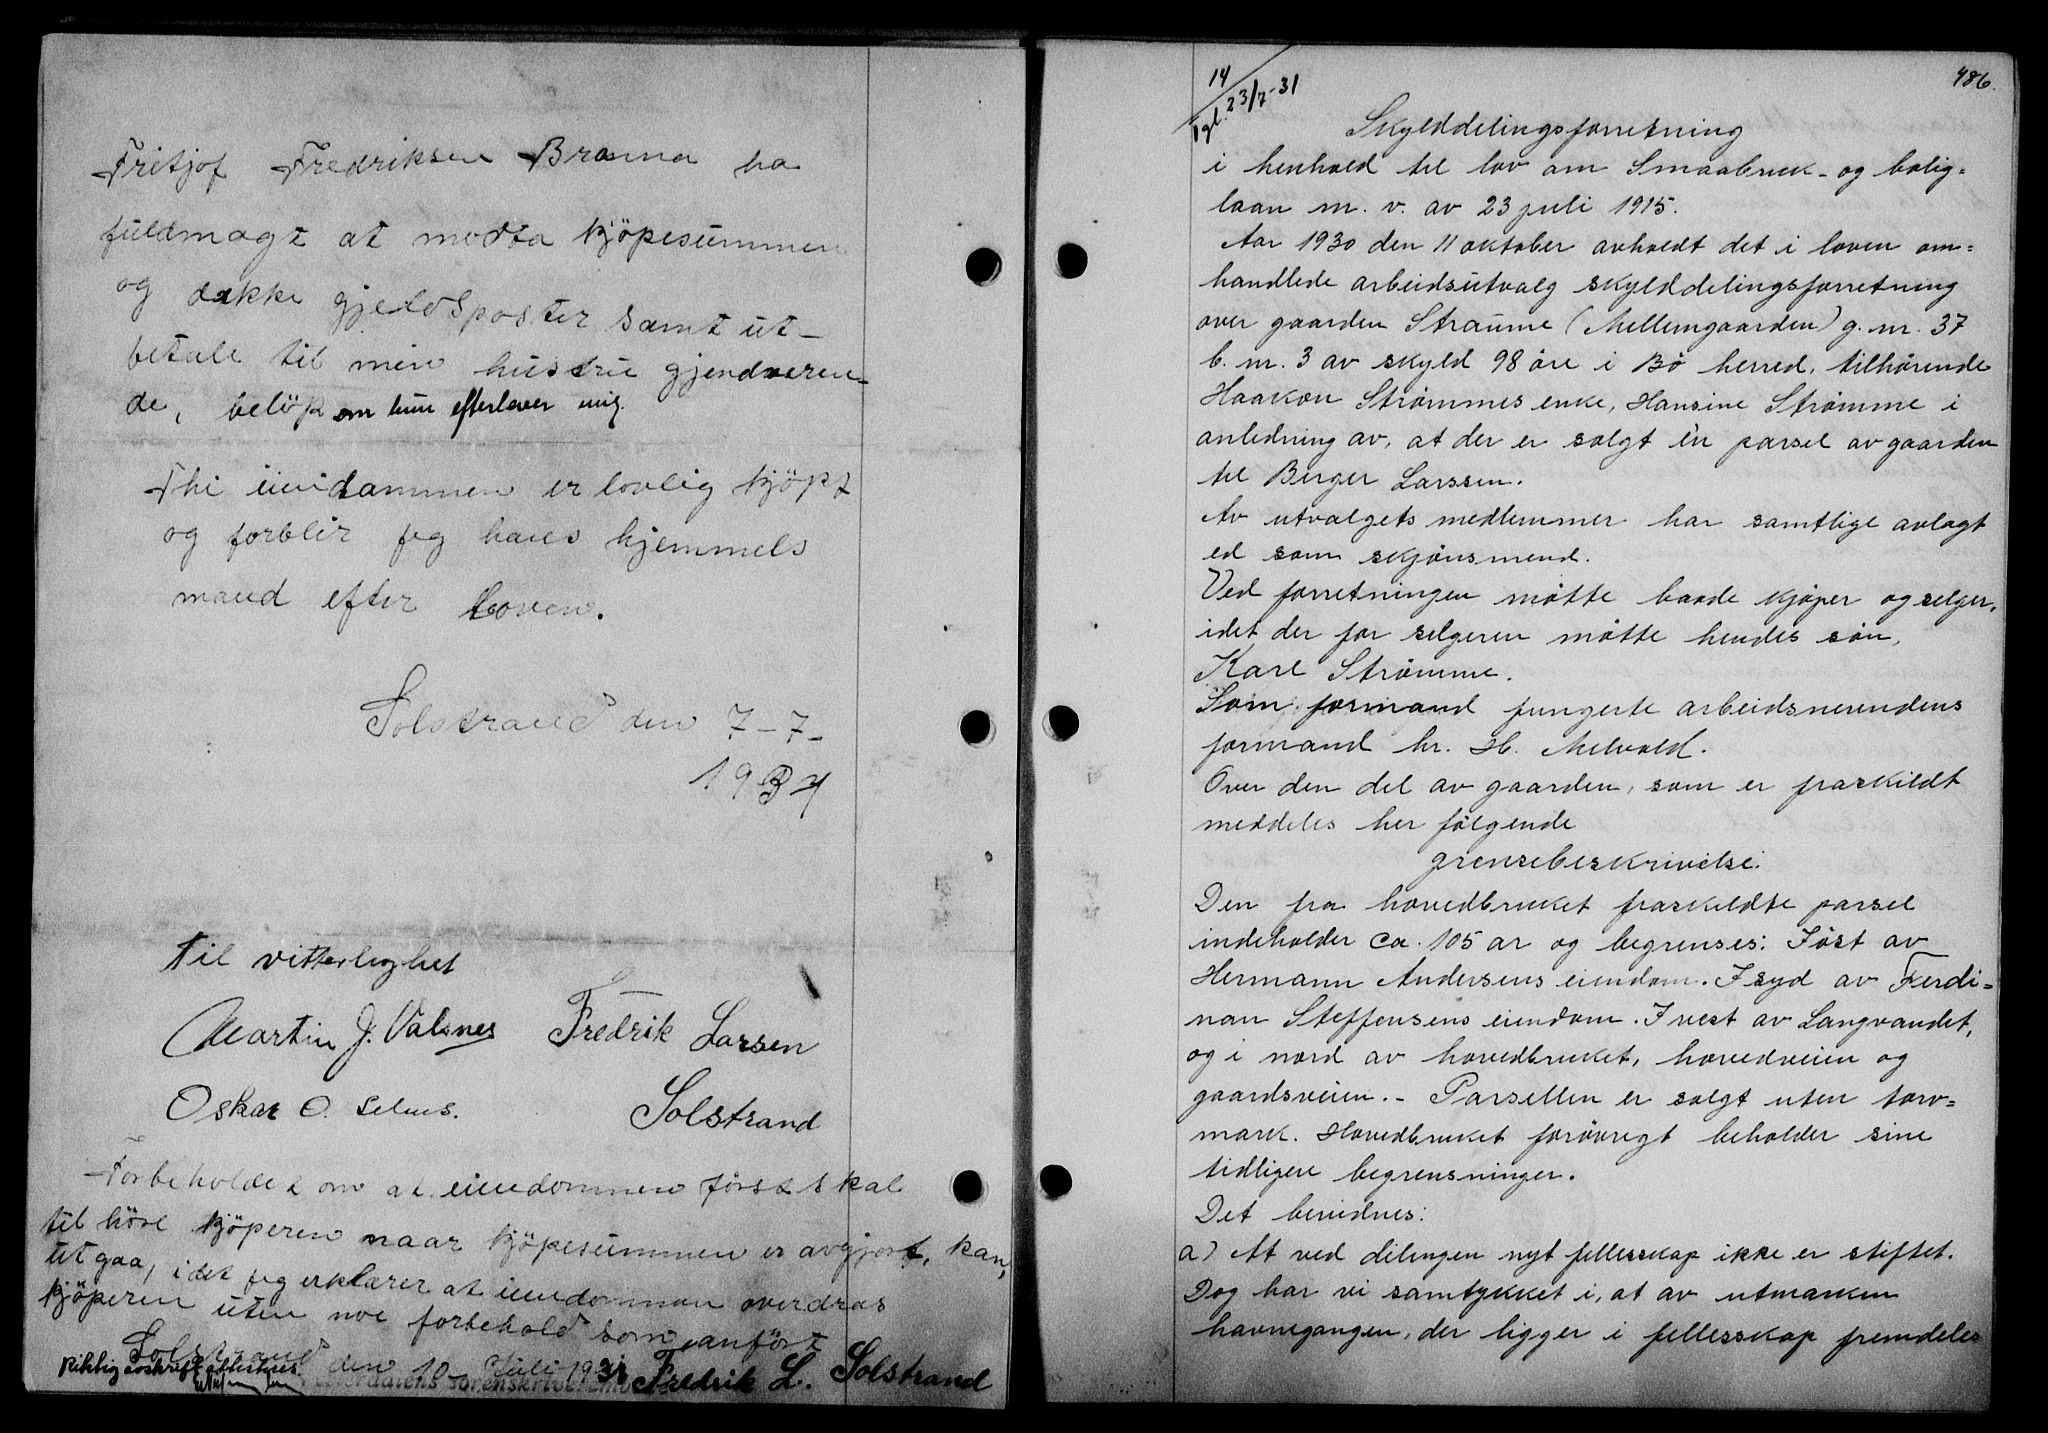 Fritjof Fredriksen Brasna ha
fuldmagt at motta kjöpesummen
og dække gjeldsposter samt ut-
betale til min hustru gjendveren-
de, belöp om hun efterlever mig.
Thi iendommen er lovlig kjöpt
og forblir jeg hans hjemmels
mand efter Loven.
Solstrand den 7-7-
1931
Til vitterlighet
Martin J. Valsnes Fredrik Larsen
Oskar O. Selnes. Solstrand
Forbeholdet om at eiendommen först skal
til höre kjöperen naar kjöpesummen er avgjort, kan,
utgaa, idet jeg erklærer at iendommen overdras
kjöperen uten noe forbehold som anfört
Solstrand den 10 Juli 1931 Fredrik L. Solstrand
Riktig avskrift attesteres
14
Tgl. 23/7-31
486.
Skylddelingsforretning
i henhold til lov om Smaabruk- og bolig=
laan m. v. av 23 juli 1915.
Aar 1930 den 11 oktober avholdt det i loven om=
handlede arbeidsutvalg skylddelingsforretning
over gaarden Straume (Mellemgaarden) g. nr. 37
b. nr. 3 av skyld 98 öre i Bö herred, tilhørende
Haakon Strømmes enke, Hansine Strømme i
anledning av, at der er solgt èn parsel av gaarden
til Birger Larssen.
Av utvalgets medlemmer har samtlige avlagt
ed som skjönsmend.
Ved forretningen møtte baade kjøper og selger,
idet der for selgeren møtte hendes søn,
Karl Strømme.
Som formand fungerte arbeidsnevndens
formand hr. H. Melvold.
Over den del av gaarden, som er fraskildt
meddeles her følgende
grensebeskrivelse:
Den fra hovedbruket fraskildte parsel
indeholder ca. 105 ar og begrenses: I öst av
Hermann Andersens eiendom. I syd av Ferdi=
nan Steffensens eiendom. I vest av Langvandet,
og i nord av hovedbruket, hovedveien og
gaardsveien. - Parsellen er solgt uten torv=
mark. Hovedbruket forøvregt beholder sine
tidligere begrensninger.
Det bevidnes:
a) At ved delingen nyt fellesskap ikke er stiftet.
Dog har vi samtykket i, at av utmarken
havnegangen, der ligger i fellesskap fremdeles